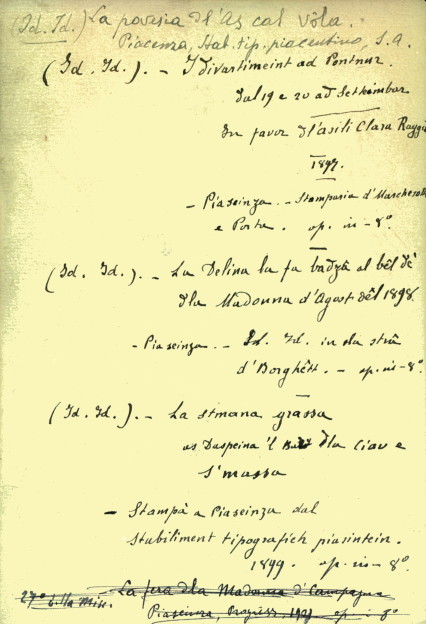 (Id. Id.) La povejia d'l'As cal vôla.
Piacenza, Stab. tip. piacentino, S. A.
(Id. Id.). - I divartimeint ad Pontnur.
dal 19 e 20 ad Settembar
In favor d'l'asili Clara Raggi
1897.
- Piaseinza. - Stamparia d'Marchesotti
e Porta. op. in-8º.
(Id. Id.). - La Delina la fa badzâ al bêl dè
dla Madonna d'Agost dêl 1898.
- Piaseinza. - Id. Id. in dla strâ
d'Borghëtt. - op. in-8º.
(Id. Id.). - La stmana grassa
as Daspeina 'l dla Ciav e
S'massa
- Stampà a Piaseinza dal
Stabiliment tipografich piasintein.
1899. op. in-8º.
- La fera dla Madonna d'Campagna
Piaseinza, op. in 8º